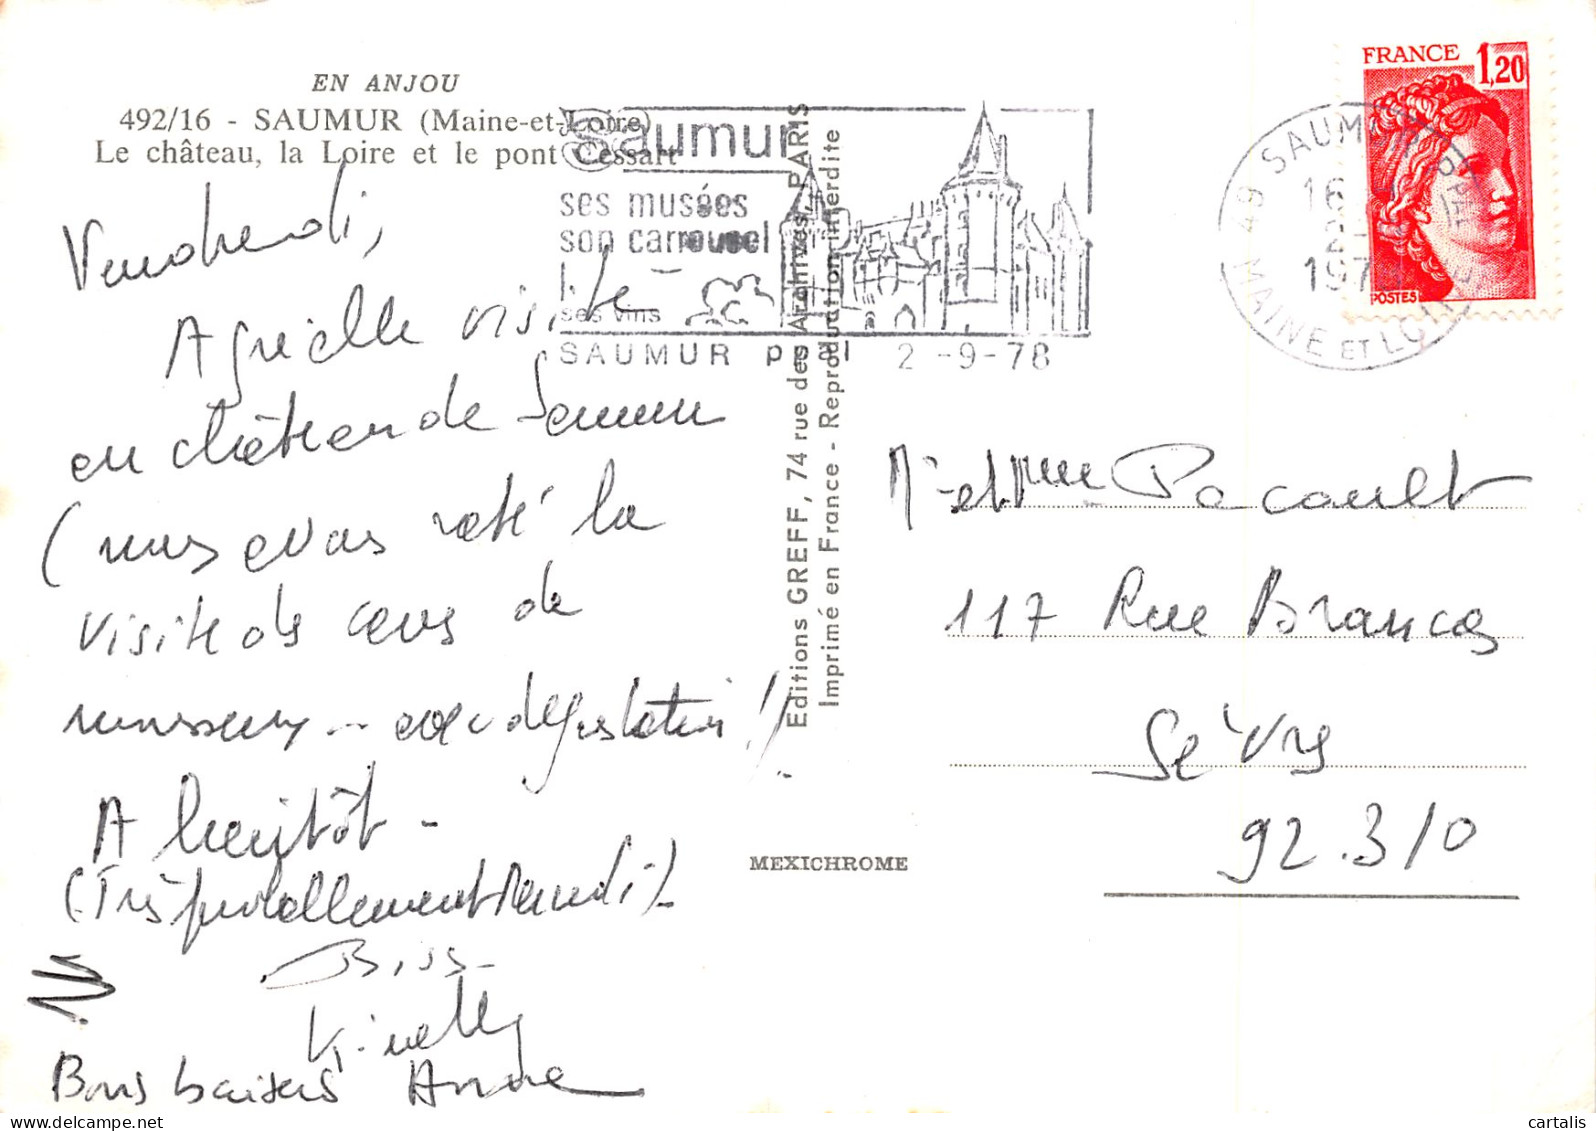 EN ANJOU
492/16 - SAUMUR (Maine-et-Loire)
Le château, la Loire et le pont Cessart
Vendredi,
Agréable visite
au château de Saumur
(nous avons raté la
visite des caves de
mousseux - avec dégustation !!
A bientôt -
(Très probablement lundi).
Bises
Bons baisers Anne
Saumur
ses musées
son carrousel
ses vins
SAUMUR ppal 2-9-78
Editions GREFF, 74 rue des Archives, PARIS
Imprimé en France - Reproduction interdite
MEXICHROME
FRANCE 1,20
POSTES
49 SAUMUR PPAL
16
2-9
1978
MAINE ET LOIRE
Mr et Mme Pacault
117 Rue Brancas
Sèvres
92.310
cartalis